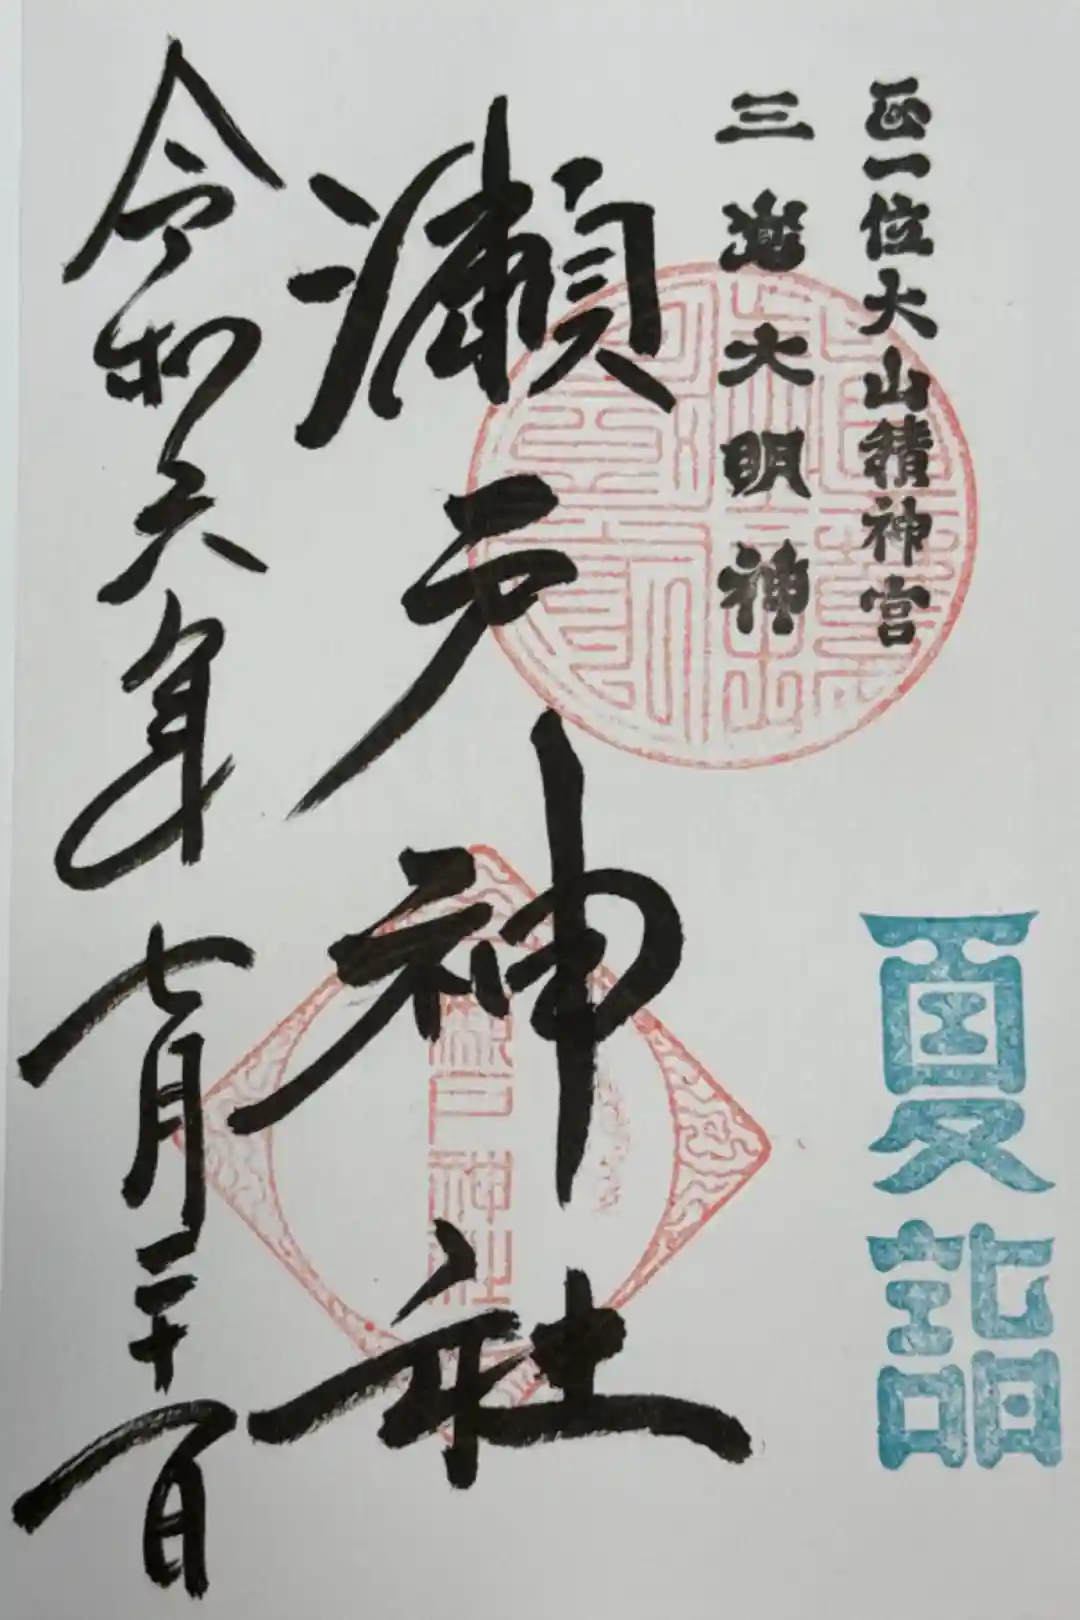 正一位大山積神宮
三嶌大明神
夏詣
瀬戸神社
瀬戸神社
令和六年七月二十一日